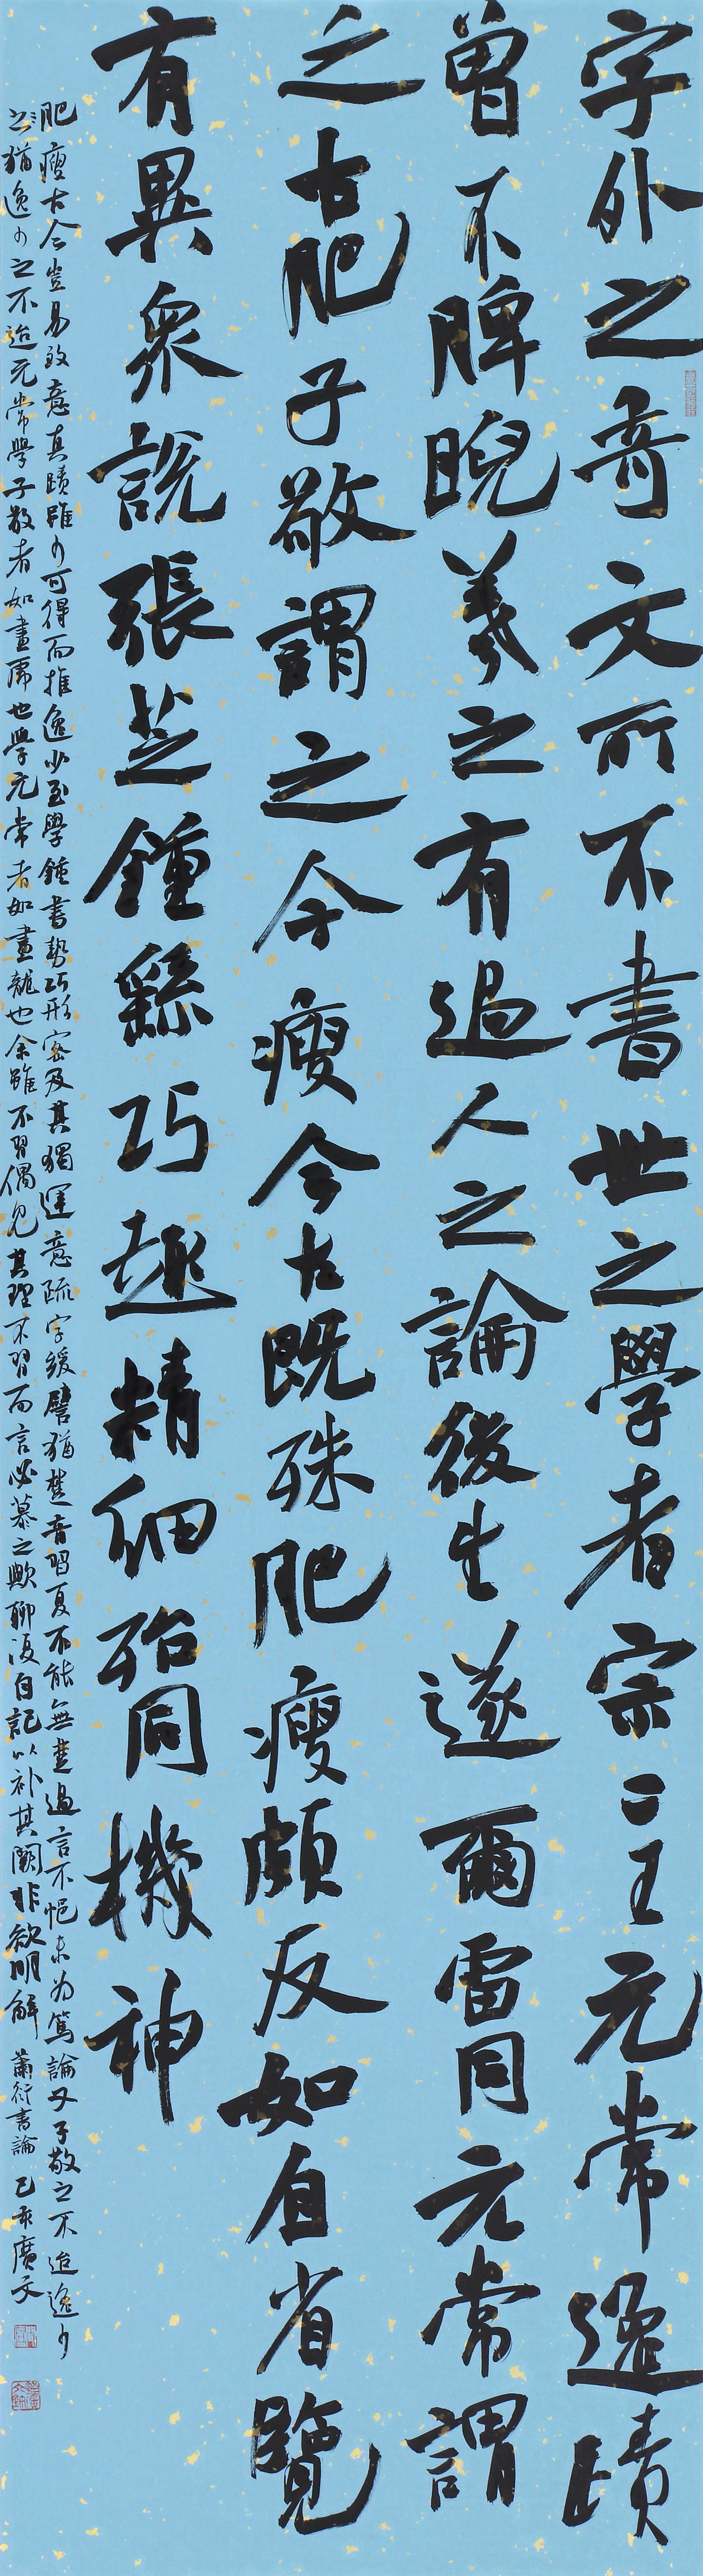 字外之奇文所不書世之學者宗二王元常逸蹟
曾不睥睨羲之有過人之論後生遂爾雷同元常謂
之古肥子敬謂之今瘦今古既殊肥瘦頗反如自省覽
有異衆說張芝鍾繇巧趣精細殆同機神
肥瘦古今豈易致意真蹟雖少可得而推逸少至學鍾書勢巧形密及其獨運意疏字緩譬猶楚音習夏不能無楚過言不悒未為篤論又子敬之不迨逸少
之猶逸少之不迨元常學子敬者如畫虎也學元常者如畫龍也余雖不習偶見其理不習而言必慕之歟聊復自記以补其闕非欲明解 蕭衍書論 己亥廣文